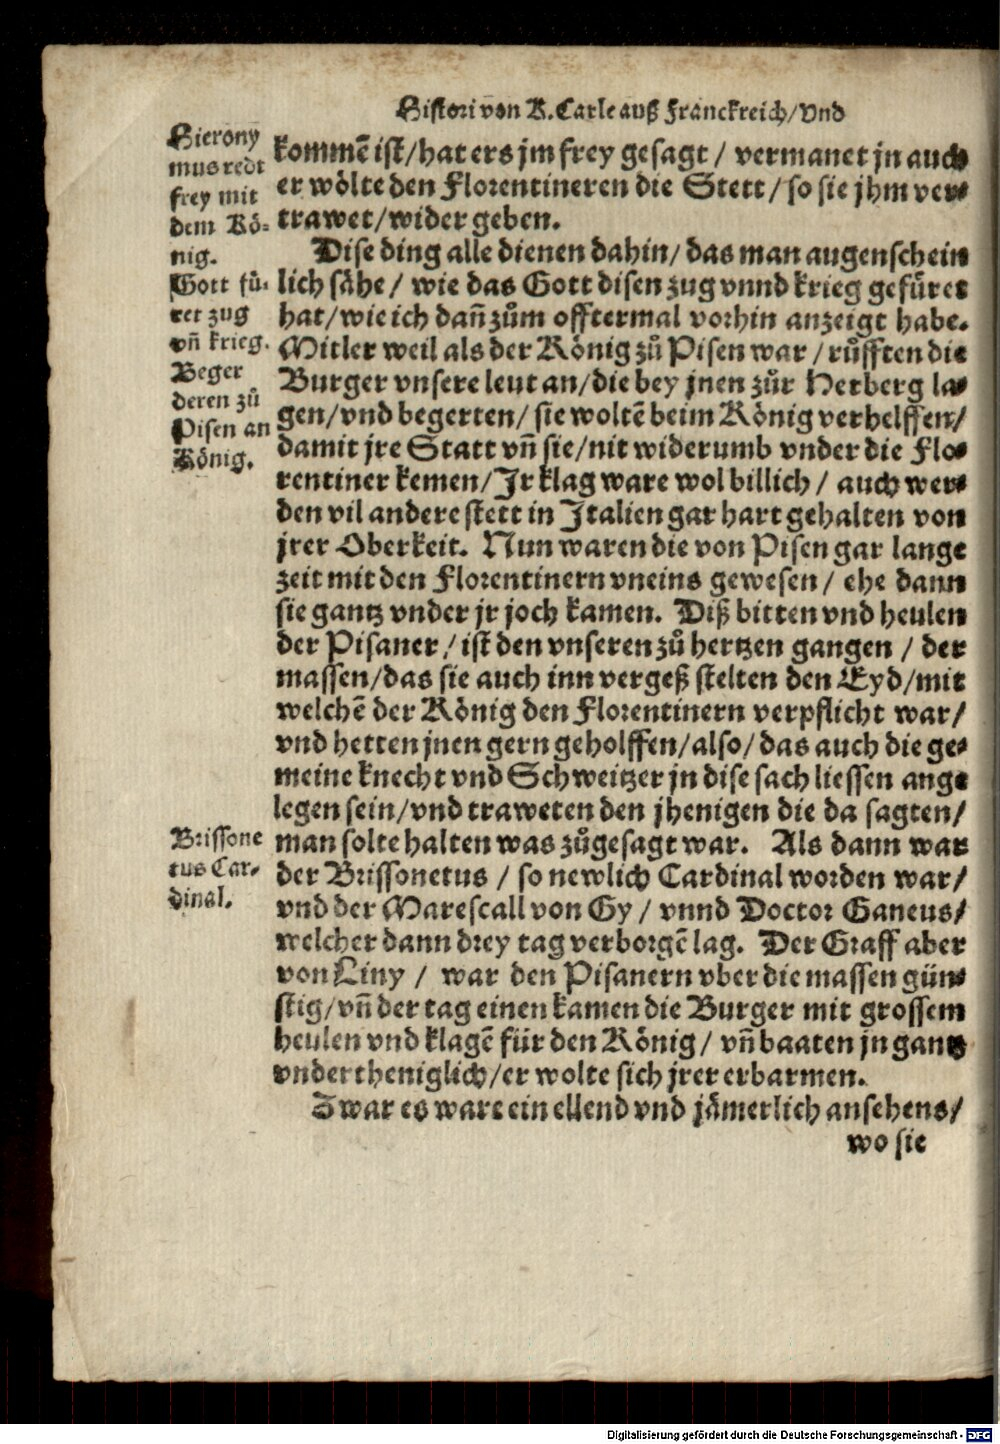 Histori von K. Carle auß Franckreich/vnd
Hierony
mus redt
frey mit
dem Kö-
nig.
Gott fü-
ret zug
vñ krieg.
Beger
deren zů
Pisen an
König.
kommẽ ist/hat ers jm frey gesagt / vermanet jn auch
er wölte den Florentineren die Stett/so sie jhm ver-
trawet/wider geben.
Dise ding alle dienen dahin/das man augenschein
lich sähe / wie das Gott disen zug vnnd krieg gefüret
hat/wie ich dañ zům offtermal vorhin anzeigt habe.
Mitler weil als der König zů Pisen war / růfften die
Burger vnsere leut an/die bey jnen zůr Herberg la-
gen/vnd begerten/sie woltẽ beim König verhelffen/
damit jre Statt vñ sie/nit widerumb vnder die Flo-
rentiner kemen/Jr klag ware wol billich / auch wer-
den vil andere stett in Italien gar hart gehalten von
jrer Oberkeit. Nun waren die von Pisen gar lange
zeit mit den Florentinern vneins gewesen / ehe dann
sie gantz vnder jr joch kamen. Diß bitten vnd heulen
der Pisaner/ist den vnseren zů hertzen gangen / der
massen/das sie auch inn vergeß stelten den Eyd/mit
welchẽ der König den Florentinern verpflicht war/
vnd hetten jnen gern geholffen/also/das auch die ge-
meine knecht vnd Schweitzer jn dise sach liessen ange
legen sein/vnd traweten den jhenigen die da sagten/
man solte halten was zůgesagt war. Als dann war
der Brissonetus / so newlich Cardinal worden war/
vnd der Marescall von Gy / vnnd Doctor Ganeus/
welcher dann drey tag verborgẽ lag. Der Graff aber
von Liny / war den Pisanern vber die massen gün-
stig/vñ der tag einen kamen die Burger mit grossem
heulen vnd klagẽ für den König/ vñ baaten jn gantz
vndertheniglich/er wolte sich jrer erbarmen.
Zwar es ware ein ellend vnd jämerlich ansehens/
Brissone
tus Car-
dinal.
wo sie
Digitalisierung gefördert durch die Deutsche Forschungsgemeinschaft - DFG